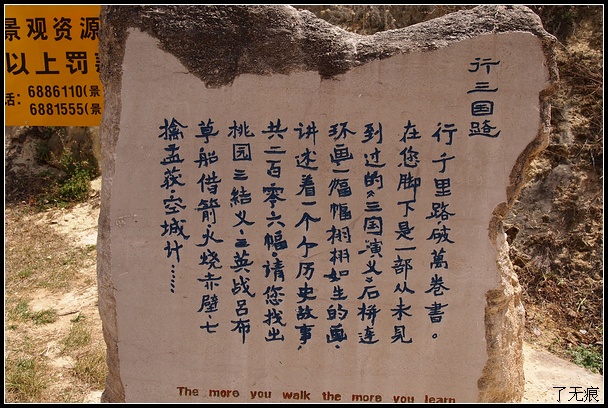 景观资源
以上罚
话：6886110(景
6881555(景
行三国路
行千里路破萬卷書。
在您脚下是一部从未见
到过的《三国演义》石桥连
环画一幅幅栩栩如生的画、
讲述着一个个历史故事，
共二百零六幅。请您找出
桃园三结义、三英战呂布
草船借箭火烧赤壁七
擒孟获空城计……
The more you walk the more you learn
了无痕